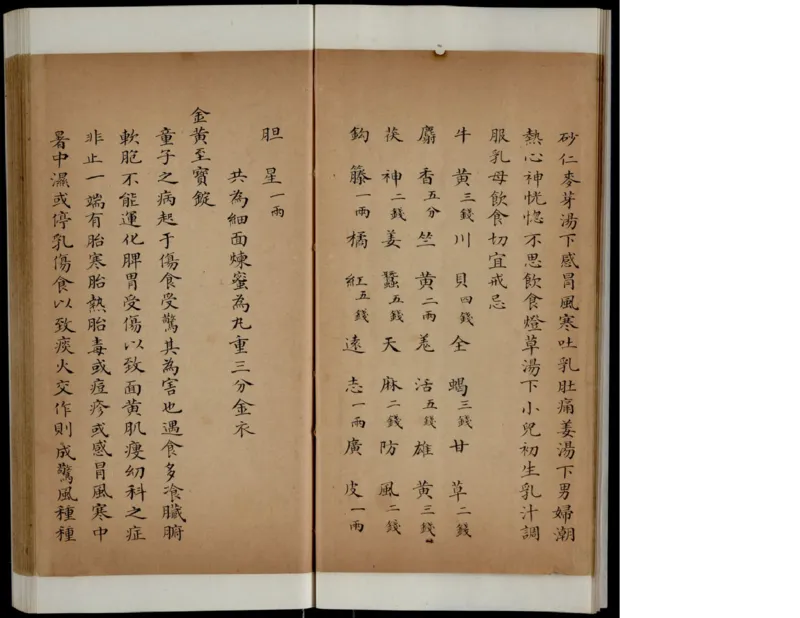 砂仁麥芽湯下感冒風寒吐乳肚痛姜湯下男婦潮
熱心神恍惚不思飲食燈草湯下小兒初生乳汁調
服乳母飲食切宜戒忌
牛黃三錢川貝四錢全蝎三錢甘草二錢
麝香五分竺黃二兩羗活五錢雄黃三錢
茯神二錢姜蠶五錢天麻二錢防風二錢
鈎藤一兩橘紅五錢遠志一兩廣皮一兩
胆星一兩
共為細面煉蜜為丸重三分金衣
金黃至寶錠
童子之病起于傷食受驚其為害也遇食多冷臟腑
軟胞不能運化脾胃受傷以致面黃肌瘦幼科之症
非止一端有胎寒胎熱胎毒或痘疹或感冒風寒中
暑中濕或停乳傷食以致痰火交作則成驚風種種